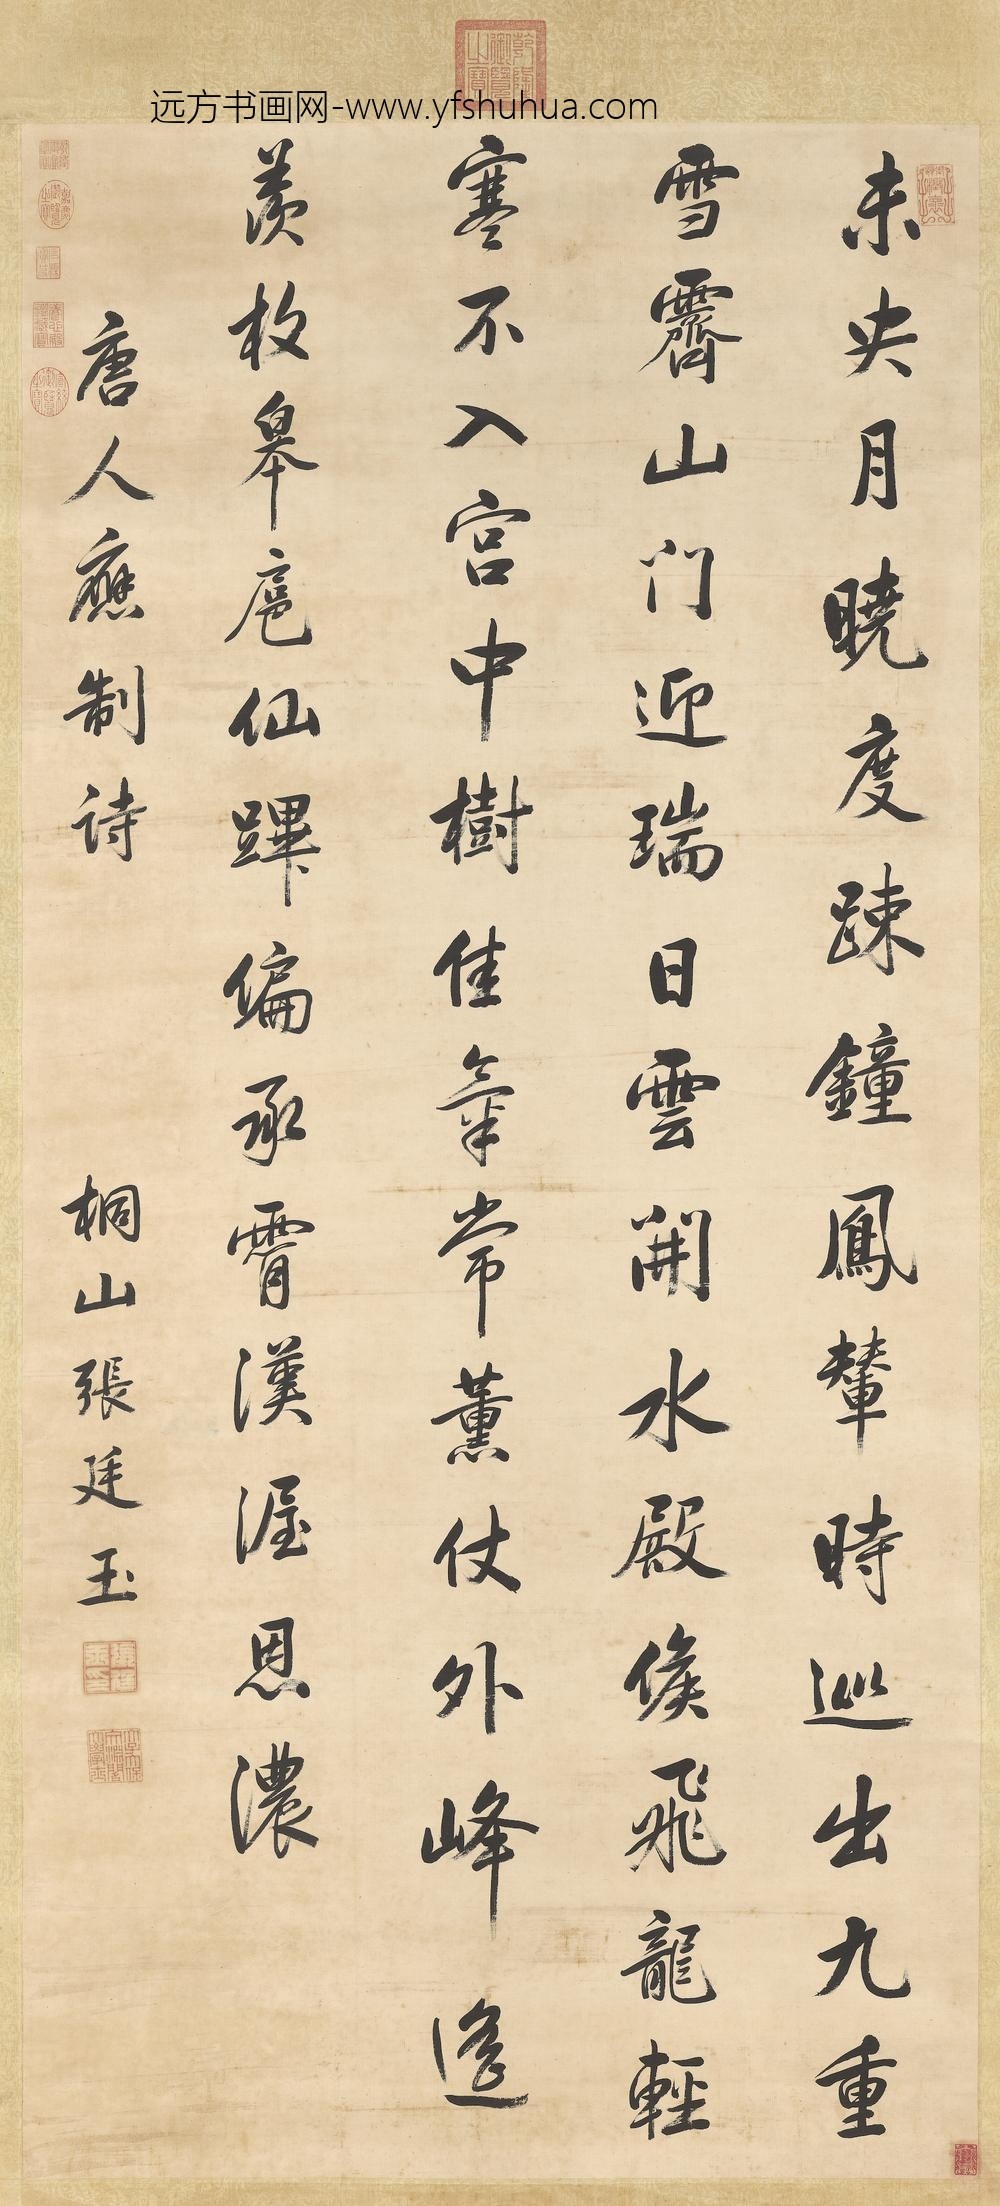 远方书画网-www.yfshuhua.com
未央月曉度踈鐘鳳輦時巡出九重
雪霽山門迎瑞日雲開水殿候飛龍輕
寒不入宮中樹佳氣常薰仗外峰遙
羨枚皋扈仙蹕偏承霄漢渥恩濃
唐人應制诗
桐山張廷玉
乾隆御覽之寶